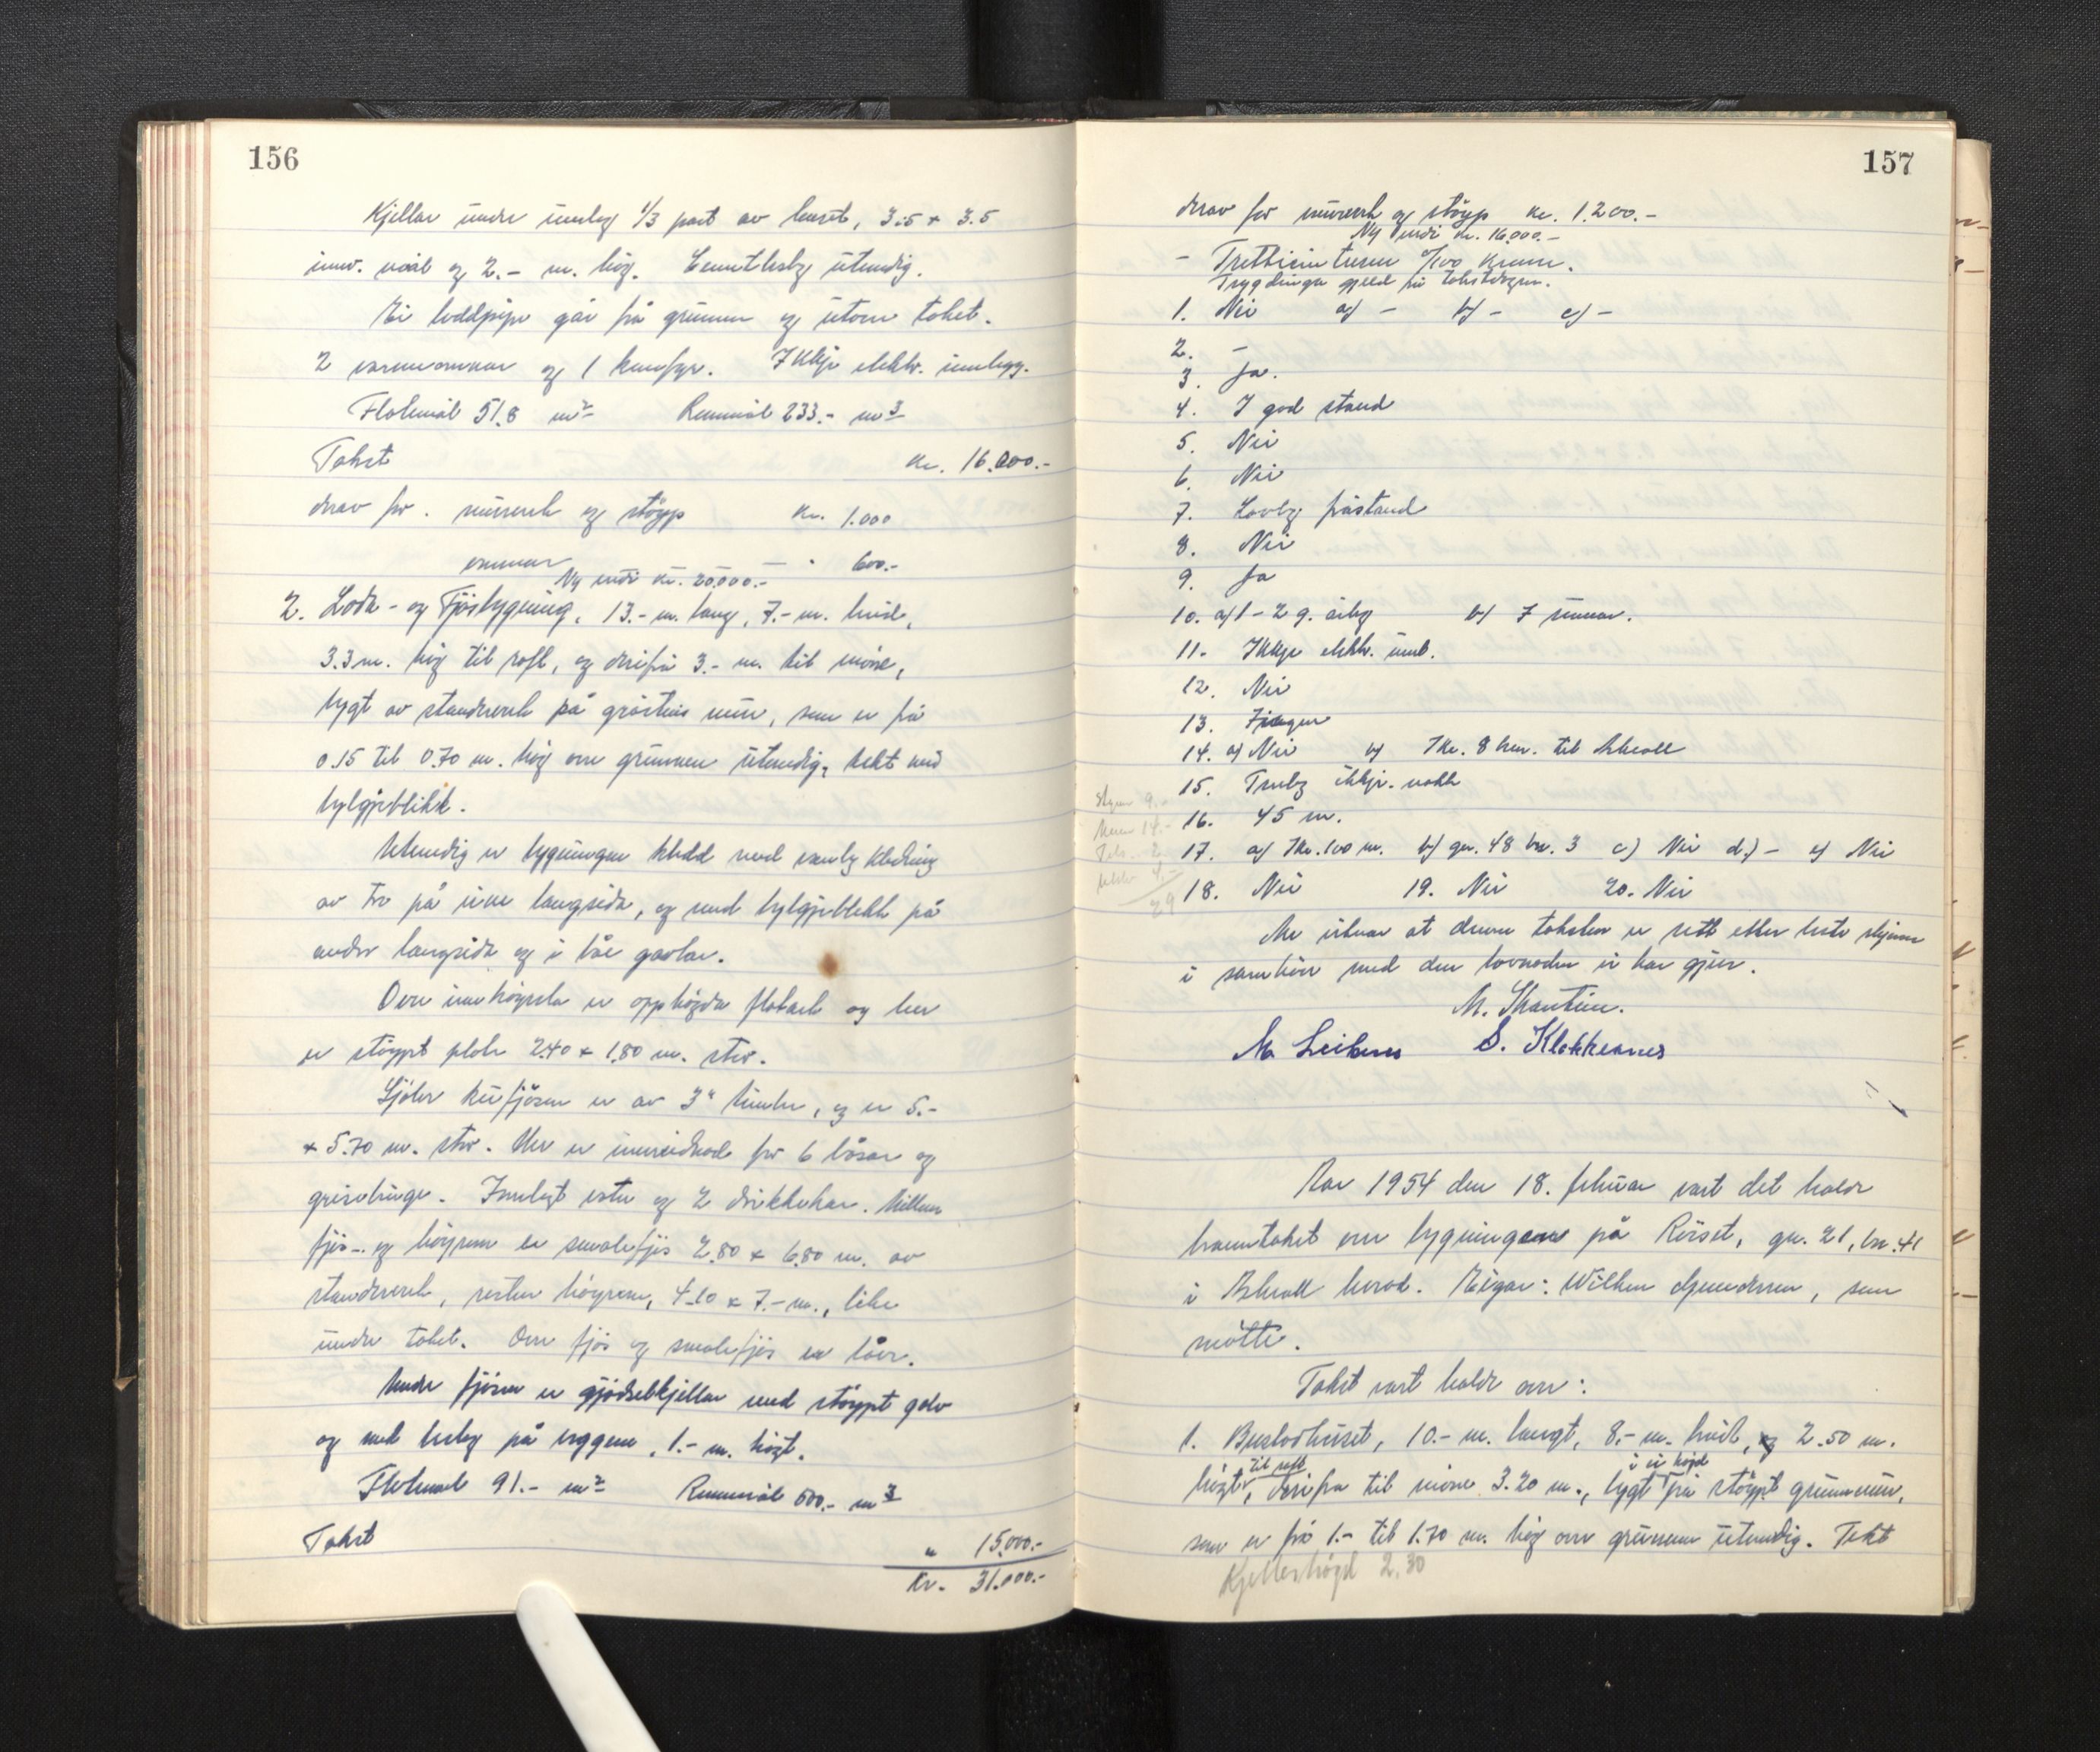 156
Kjellar under umlag 1/3 part av huset, 3.5 x 3.5
innv. mål og 2.- m. høg. Cementbelag utvendig.
Ei loddpipe går frå grunnen og utom taket.
2 varmeomnar og 1 komfyr. Ikkje elektr. innlegg.
Flatemål 51.8 m² Rommål 233.- m³
Takst kr. 16.000.-
Derav for murverk og støyp kr. 1.000
omnar " 600.-
Ny verdi kr. 20.000.-
2. Löda- og Fjösbygning, 13.- m. lang, 7.- m. breid,
3.3 m. høg til raft, og derifrå 3.- m. til møne,
bygt av standverk på gråsteins mur, som er frå
0.15 til 0.70 m. høg over grunnen utvendig, tekt med
bylgjeblikk.
Utvendig er bygningen kledd med vanleg kledning
av tre på eine langsida, og med bylgjeblikk på
andre langsida og i båe gavlar.
Over innkøyrsla er opphögda flatark og her
er støypt plate 2.40 x 1.80 m. stor.
Sjølve kufjøsen er av 3" timber, og er 5.-
x 5.70 m. stor. Her er innreidnad for 6 båsar og
grisebinge. Innlagt vatn og 2 drikkekar. Millom
fjøs- og høyrom er smalefjøs 2.80 x 6.80 m. av
standverk, resten høyrom, 4.10 x 7.- m., like
under taket. Over fjøs og smalefjøs er låve.
Under fjøsen er gjødselkjellar med støypt golv
og med belag på veggene, 1.- m. høgt.
Flatemål 91.- m² Rommål 500.- m³
Takst " 15.000.-
Kr. 31.000.-
157
derav for murverk og støyp kr. 1.200.-
Ny verdi kr. 16.000.-
- Trettieintusen 0/100 kroner.
Trygdinga gjeld frå takstdagen.
1. Nei a) - b) - c) -
2. -
3. Ja.
4. I god stand
5. Nei
6. Nei
7. Lovleg påstand
8. Nei
9. Ja
10. a) 1-2 g. årleg b) 7 rumar.
11. Ikkje elektr. innl.
12. Nei
13. Ingen
14. a) Nei b) Ikr. 8 km. til Askvoll
15. Truleg ikkje. nokk
16. 45 m.
17. a) Ikr. 100 m. b) gn. 48 bn. 3 c) Nei d.) - e) Nei
18. Nei 19. Nei 20. Nei
29
Me vitnar at denne taksten er sett etter beste skjøn
i samhøve med den lovnaden vi har gjeve.
M. Leikanes S. Klokkernes
Aar 1954 den 18. februar vart det halde
branntakst over bygningane på Rörset, gn. 21, bn. 41
i Askvoll herad. Eigar: Wilhm Gunderson, som
møtte.
Takst vart halde over:
1. Bustadhuset, 10.- m. langt, 8.- m. breid, og 2.50 m.
til raft i ei høgd
høgt, derifrå til møne 3.20 m., bygt på støypt grunnmur,
som er frå 1.- til 1.70 m. høg over grunnen utvendig. Tekt
Kjellerhøgd 2.30